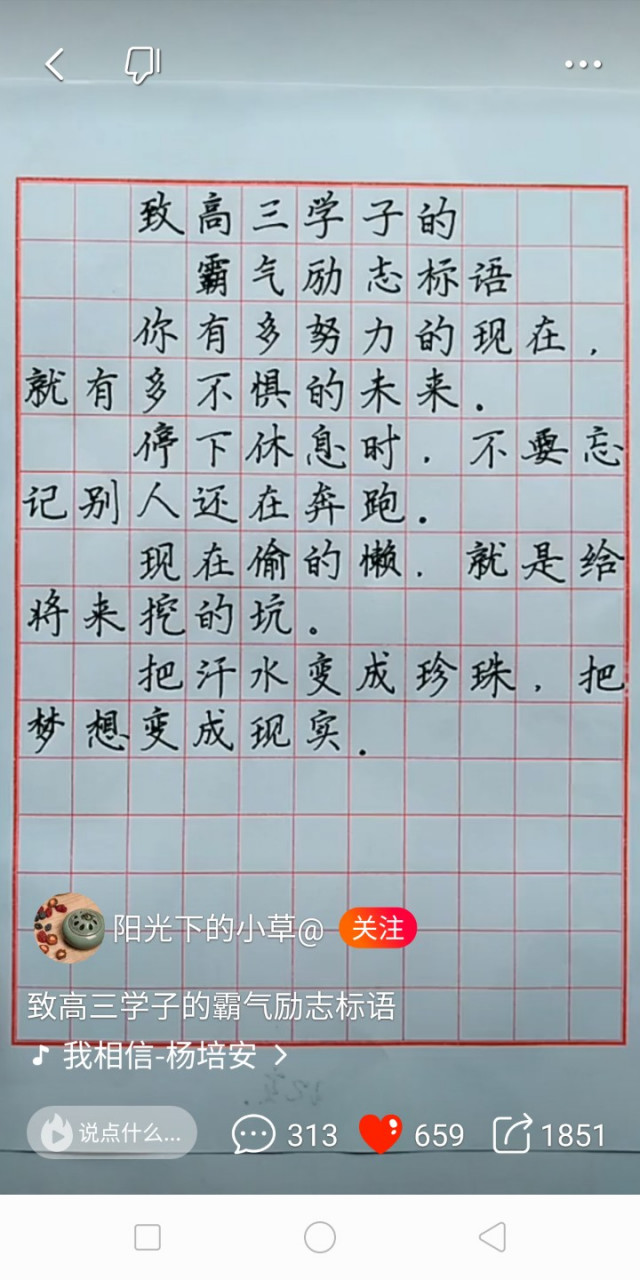 致高三学子的
霸气励志标语
你有多努力的现在，
就有多不惧的未来.
停下休息时.不要忘
记别人还在奔跑.
现在偷的懒.就是给
将来挖的坑。
把汗水变成珍珠，把
梦想变成现实.
阳光下的小草@ 关注
致高三学子的霸气励志标语
我相信-杨培安
说点什么... 313 659 1851